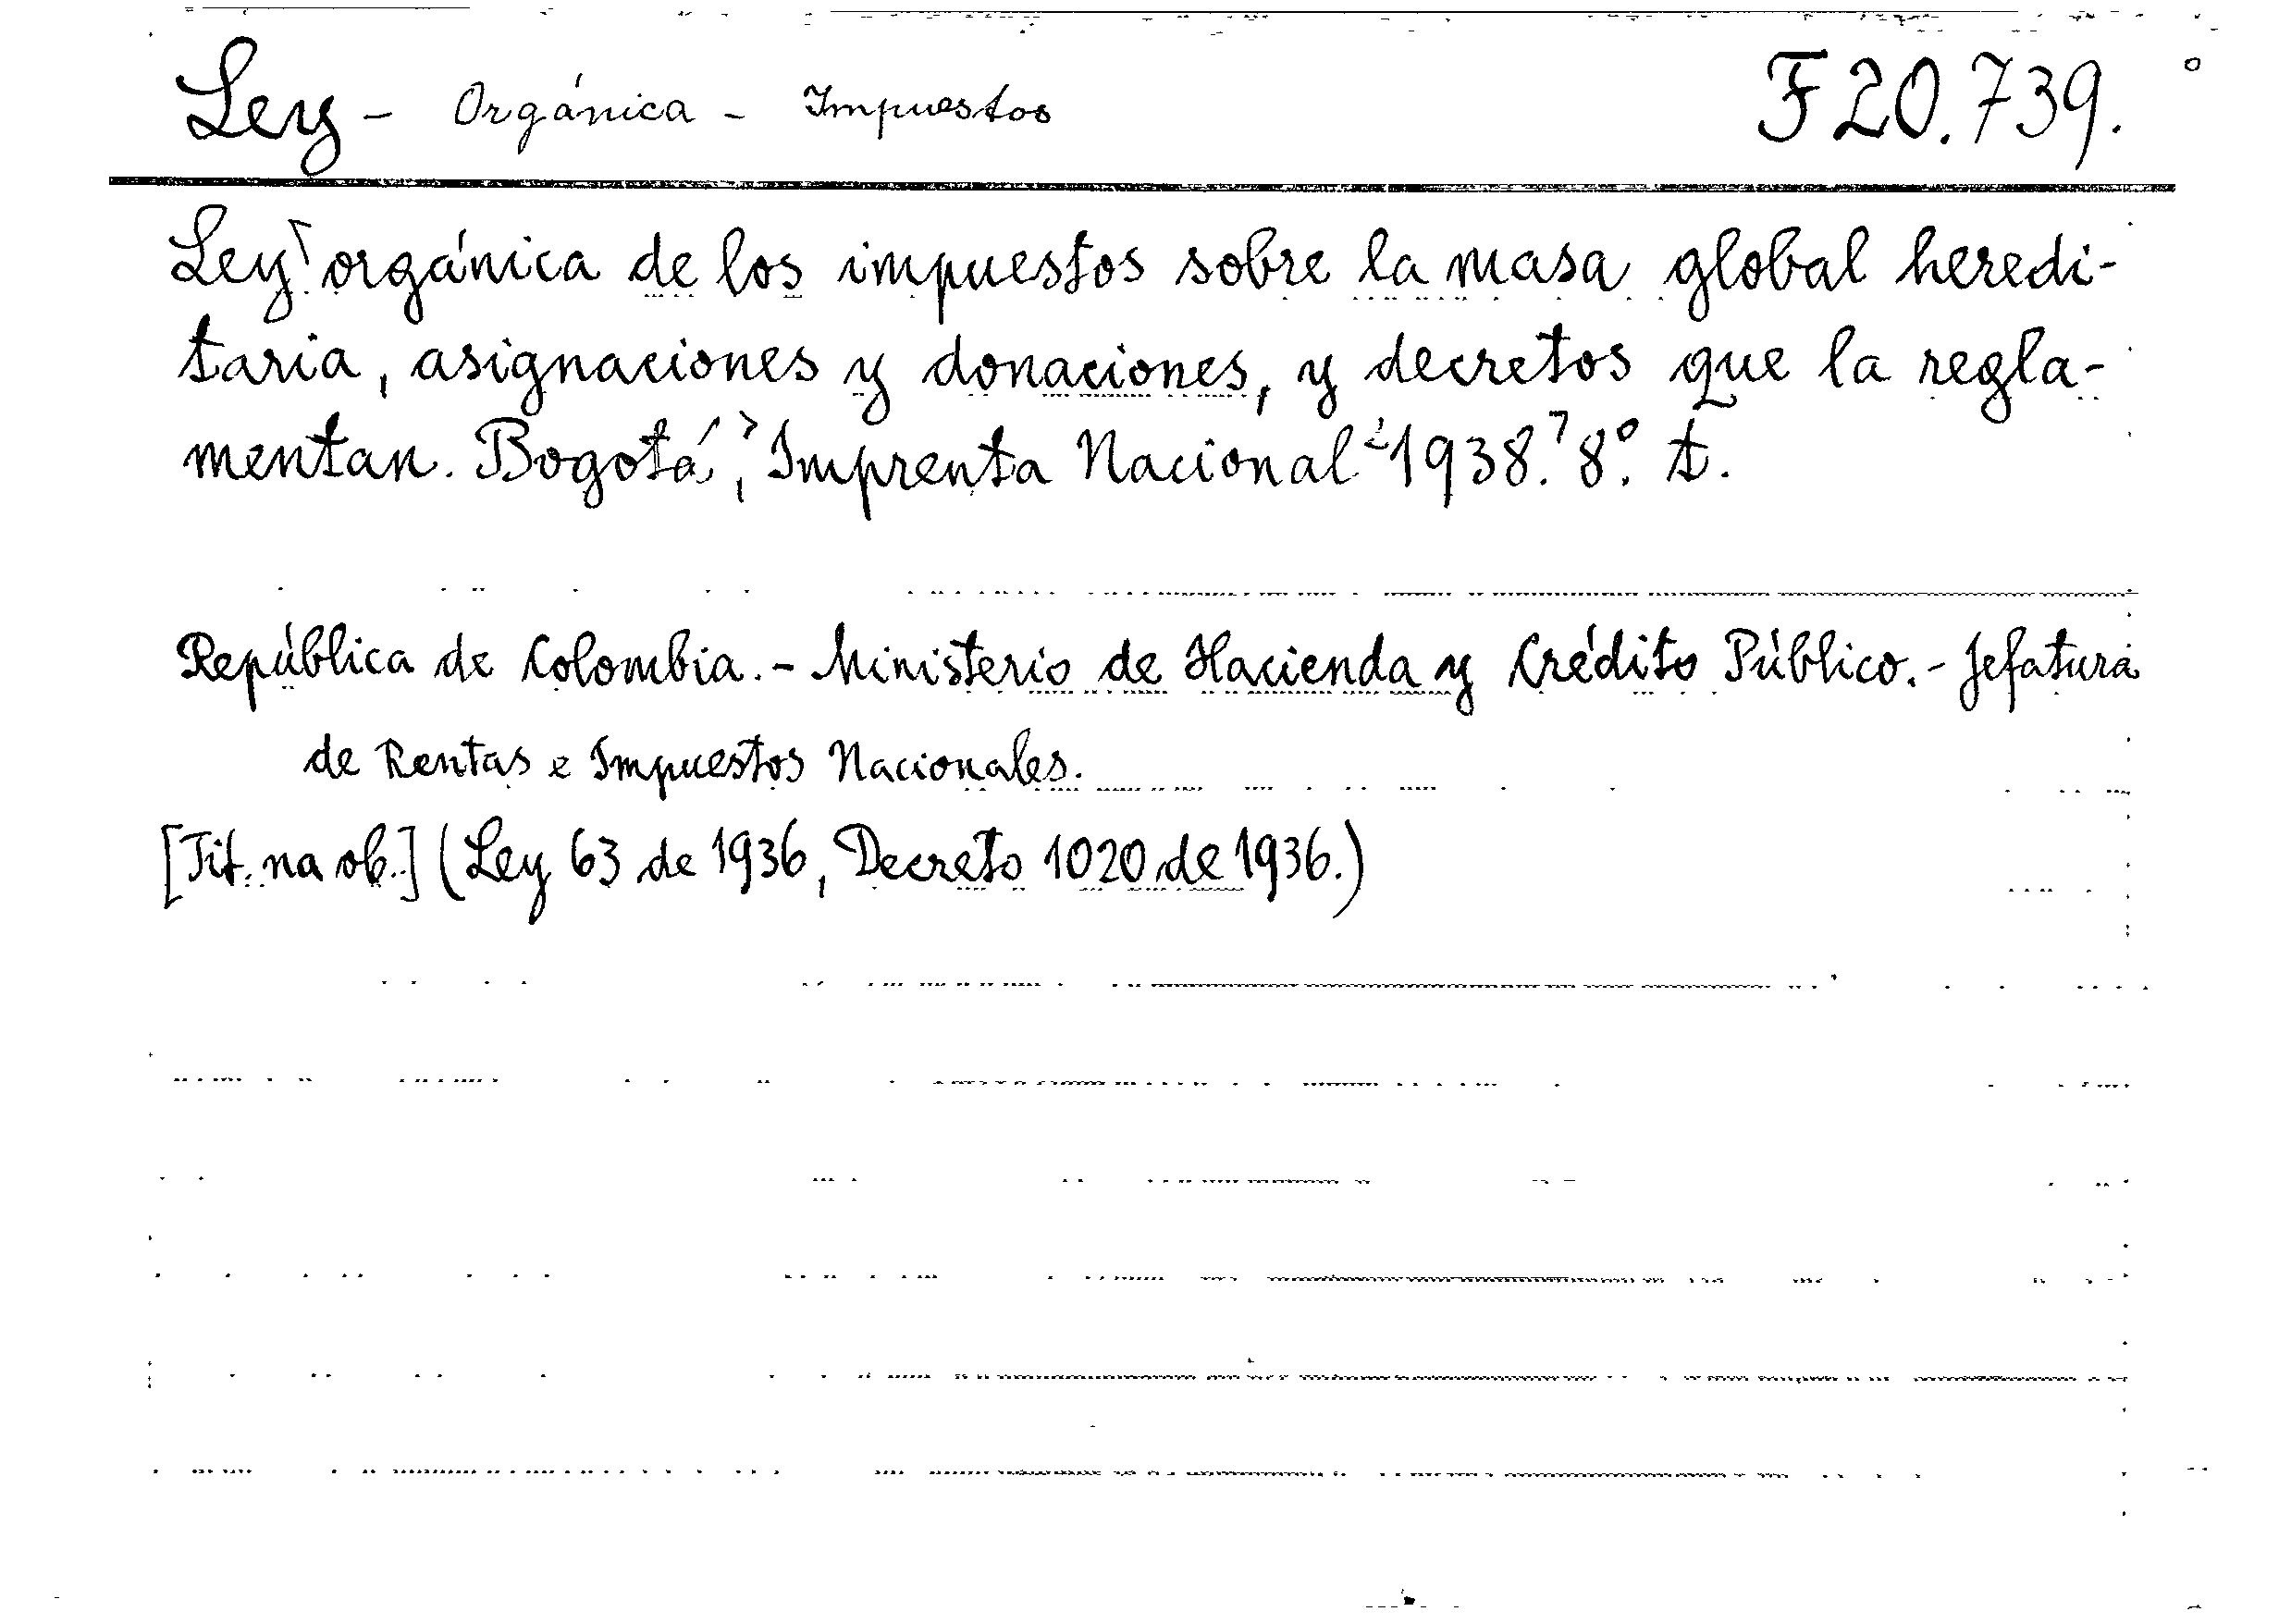 Ley - Orgánica - Impuestos F 20.739.
Ley orgánica de los impuestos sobre la masa global heredi-
taria, asignaciones y donaciones, y decretos que la regla-
mentan. Bogotá, Imprenta Nacional 1938. 8º. t.
República de Colombia. - Ministerio de Hacienda y Crédito Público. - Jefatura
de Rentas e Impuestos Nacionales.
[Tit. na ob.] (Ley 63 de 1936, Decreto 1020 de 1936.)